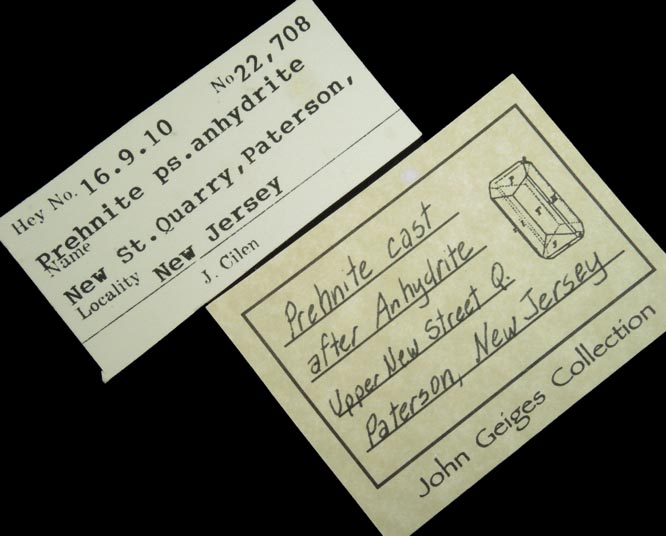 Hey No. 16.9.10 No 22,708
Prehnite ps.anhydrite
Name
New St.Quarry,Paterson,
Locality New Jersey
J. Cilen
Prehnite cast
after Anhydrite
Upper New Street Q.
Paterson, New Jersey
John Geiges Collection